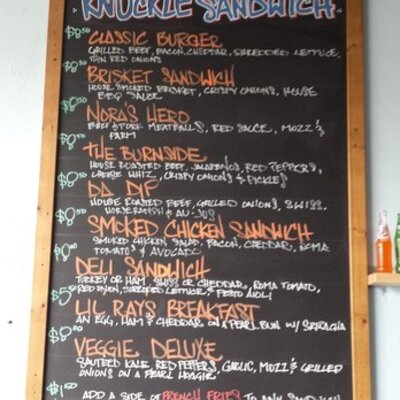 KNUCKLE SANDWICH
$8.50 CLASSIC BURGER
GRILLED BEEF, BACON, CHEDDAR, SHREDDED LETTUCE,
THIN RED ONIONS
$8.50 BRISKET SANDWICH
HOUSE SMOKED BRISKET, CRISPY ONIONS, HOUSE
BBQ SAUCE
NORA'S HERO
BEEF & PORK MEATBALLS, RED SAUCE, MOZZ &
PARM
THE BURNSIDE
HOUSE ROASTED BEEF, JALAPENOS, RED PEPPERS,
CHEESE WHIZ, CRISPY ONIONS & PICKLES
DA DIP
HOUSE ROASTED BEEF, GRILLED ONIONS, SWISS,
HORSERADISH & AU-JUS
SMOKED CHICKEN SANDWICH
SMOKED CHICKEN SALAD, BACON, CHEDDAR, ROMA
TOMATO & AVOCADO
DELI SANDWICH
TURKEY OR HAM, SWISS OR CHEDDAR, ROMA TOMATO,
RED ONION, SHREDDED LETTUCE & PESTO AIOLI
LIL RAY'S BREAKFAST
AN EGG, HAM & CHEDDAR ON A PEARL BUN W/ SRIRACHA
VEGGIE DELUXE
SAUTEED KALE, RED PEPPERS, GARLIC, MOZZ & GRILLED
ONIONS ON A PEARL HOAGIE
$1.50 ADD A SIDE OF FRENCH FRIES TO ANY SANDWICH